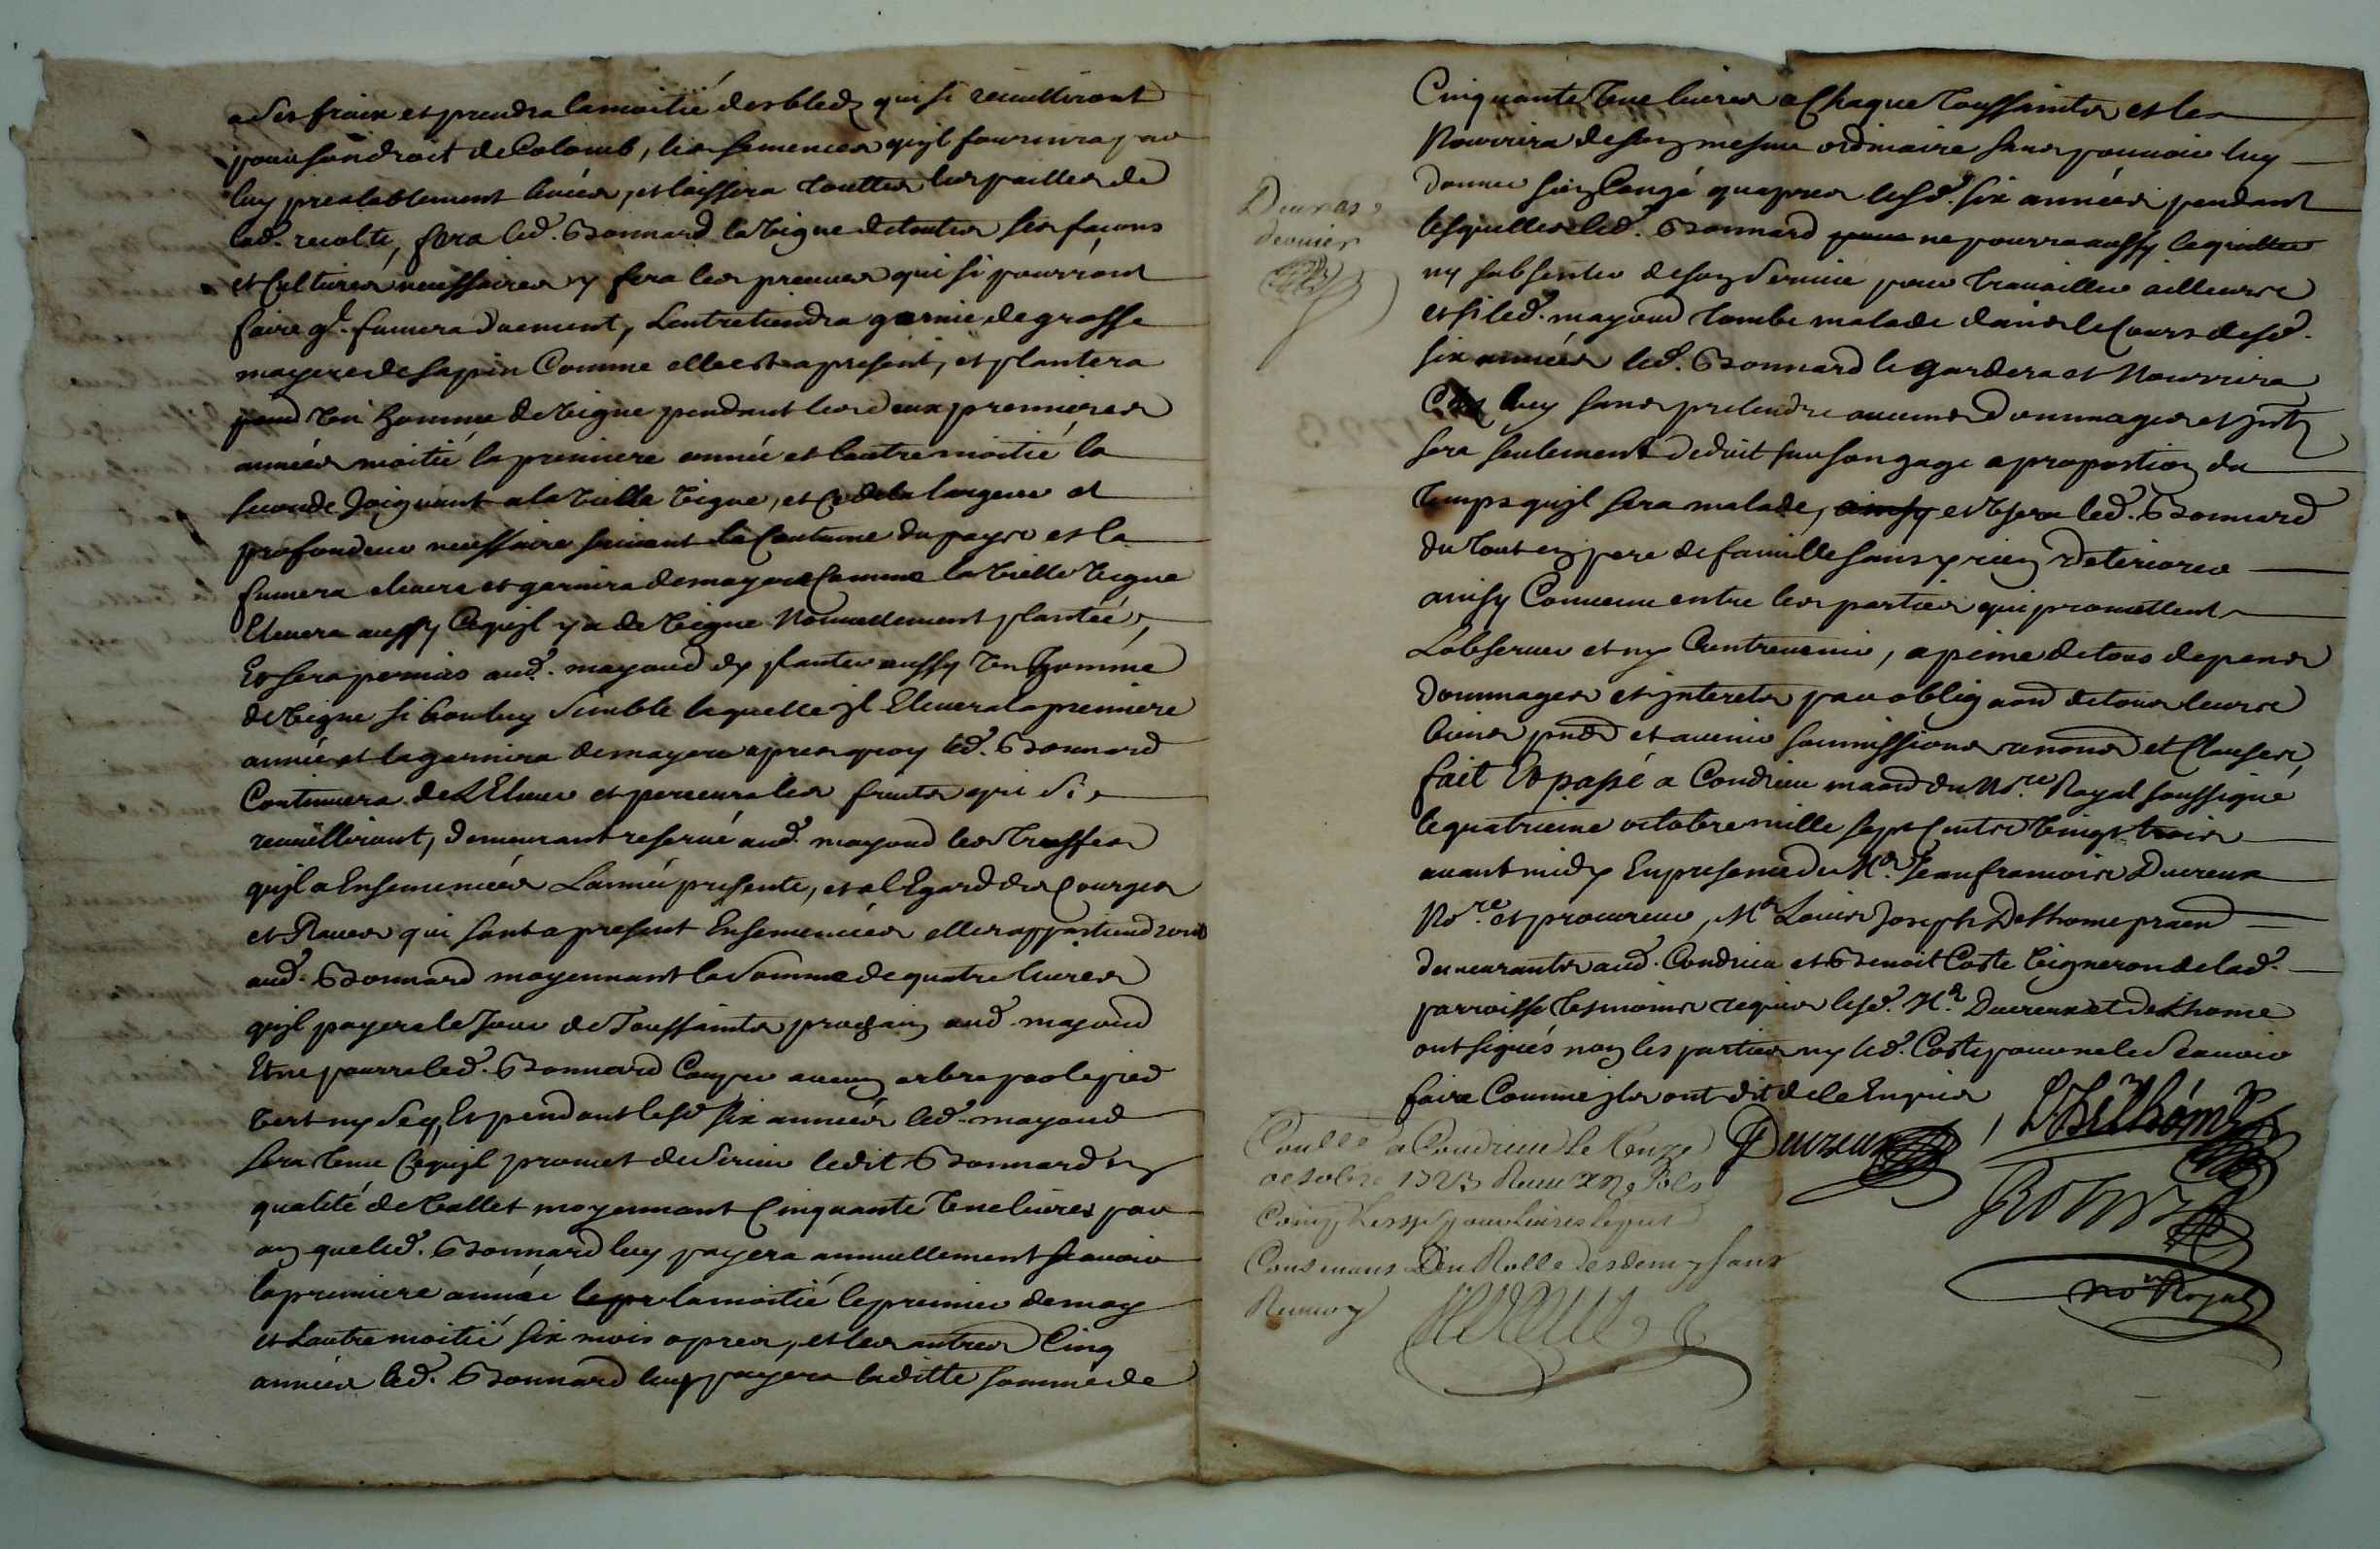 a ses fraix et prendra la moitié des bledz qui si recueilliront
pour son droit de Colomb, les semences qujl fournira par
luy prealablement levées, et laissera touttes les pailles de
lad. recolte, fera led. Bonnard la vigne de toutes ses façons
et Cultures necessaires y fera les preuues qui si pourront
faire qjl fumera duement, Lentretiendra garnie de grosse
mayere de sapin Comme elle est a present, et plantera
un homme de vigne pendant les deux premieres
années moitié la premiere année et lautre moitié la
seconde Joignant a la vielle vigne, et ce de la largeur et
profondeur necessaire suivant la Coutume du pays et la
fumera elevera et garnira de mayere Comme la vielle vigne
Elevera aussy Ce qujl y a de vigne Nouvellement plantée,
Et sera permis aud. mayoud dy planter aussy un homme
de vigne si bon luy semble laquelle jl Elevera la premiere
année et la garnira de mayere apres quoy led. Bonnard
Continuera de LElever et percevra les fruits qui si
recuëilliront, demeurant reservé aud. mayoud les Treuffes
qujl a Ensemencées Lannée presente, et a lEgard des Courges
et Raves qui sont a present Ensemencées elles appartiendront
aud. Bonnard moyennant la somme de quatre livres
qujl payera le Jour de Toussaints prochain aud. mayoud
Et ne pourra led. Bonnard Couper aucun arbre par le pied
vert ny secq, Et pendant lesd. six années led. mayoud
sera tenu Ce qujl promet de servir ledit Bonnard en
qualité de vallet moyennant Cinquante une livres par
an que led. Bonnard luy payera annuellement scavoir
la premiere année la moitié le premier de may
et Lautre moitié six mois apres, et les autres Cinq
années led. Bonnard luy payera laditte somme de
Cinquante une livres a Chaque Toussaints et le
Nourrira de son mesme ordinaire sans pouvoir luy
donner son Congé quapres lesd. six années pendant
lesquelles led. Bonnard ne pourra aussy le quitter
ny sabsenter de son service pour travailler ailleurs
et si led. mayoud tombe malade dans le Cours desd.
six années led. Bonnard le gardera et Nourrira
Chez luy sans pretendre aucuns dommages et jnts
sera seulement deduit sur son gage a proportion du
temps qujl sera malade, et usera led. Bonnard
du tout en pere de famille sans y rien deteriorer
ainsy Convenu entre les parties qui promettent
Lobserver et ny Contrevenir, a peine de tous depens
dommages et jnterets par obligaon de tous leurs
biens pnts et avenir soumissions renons et Clauses,
fait Et passé a Condrieu maison du No.re Royal soussigné
le quatrieme octobre mille sept Cents vingt trois
avant midy En presence de Me. Jean francois Ducreux
No.re et procureur, Me Louis Joseph Delhome praen
demeurants aud. Condrieu et Benoit Coste vigneron de lad.
parroisse tesmoins requis lesd. Me. Ducreux et Delhome
ont signés non les parties ny led. Coste pour ne le scavoir
faire Comme jls ont dit de ce Enquis
Ducreux
Delhome
no.re Royal
Controllé a Condrieu le onze
octobre 1723 Receu